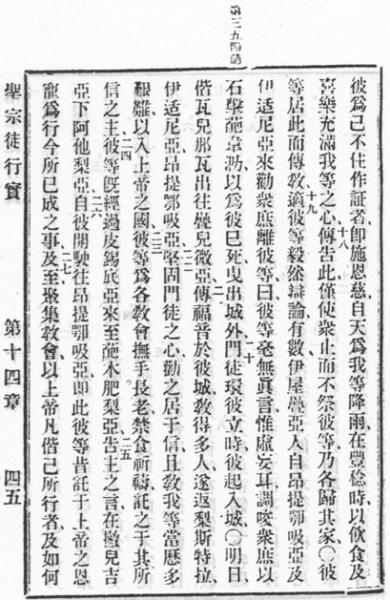 彼爲己不住作証者卽施恩慈自天爲我等降雨在豐稔時以飮食及
喜樂充滿我等之心十八傳吿此僅使衆止而不祭彼等乃各歸其家〇彼
等居此而傳敎十九適彼等毅然辯論有數伊屋疊亞人自昂提鄂吸亞及
伊适尼亞來勸衆庶離彼等曰彼等毫無眞言惟虛妄耳調唆衆庶以
石擊葩韋泐以爲彼已死曳出城外二十門徒環彼立時彼起入城〇明日
偕瓦兒那瓦出往疊兒微亞二一傳福音於彼城敎得多人遂返梨斯特拉
伊适尼亞昂提鄂吸亞二二堅固門徒之心勸之居于信且敎我等當歷多
艱難以入上帝之國二三彼等爲各敎會撫手長老禁食祈禱託之于其所
信之主二四彼等旣經過皮錫底亞來至葩木肥梨亞二五吿主之言在撇兒吉
亞下阿他梨亞二六自彼開駛往昂提鄂吸亞卽此彼等昔託于上帝之恩
寵爲行今所已成之事二七及至聚集敎會以上帝凡偕己所行者及如何
聖宗徒行實 第十四章 四五